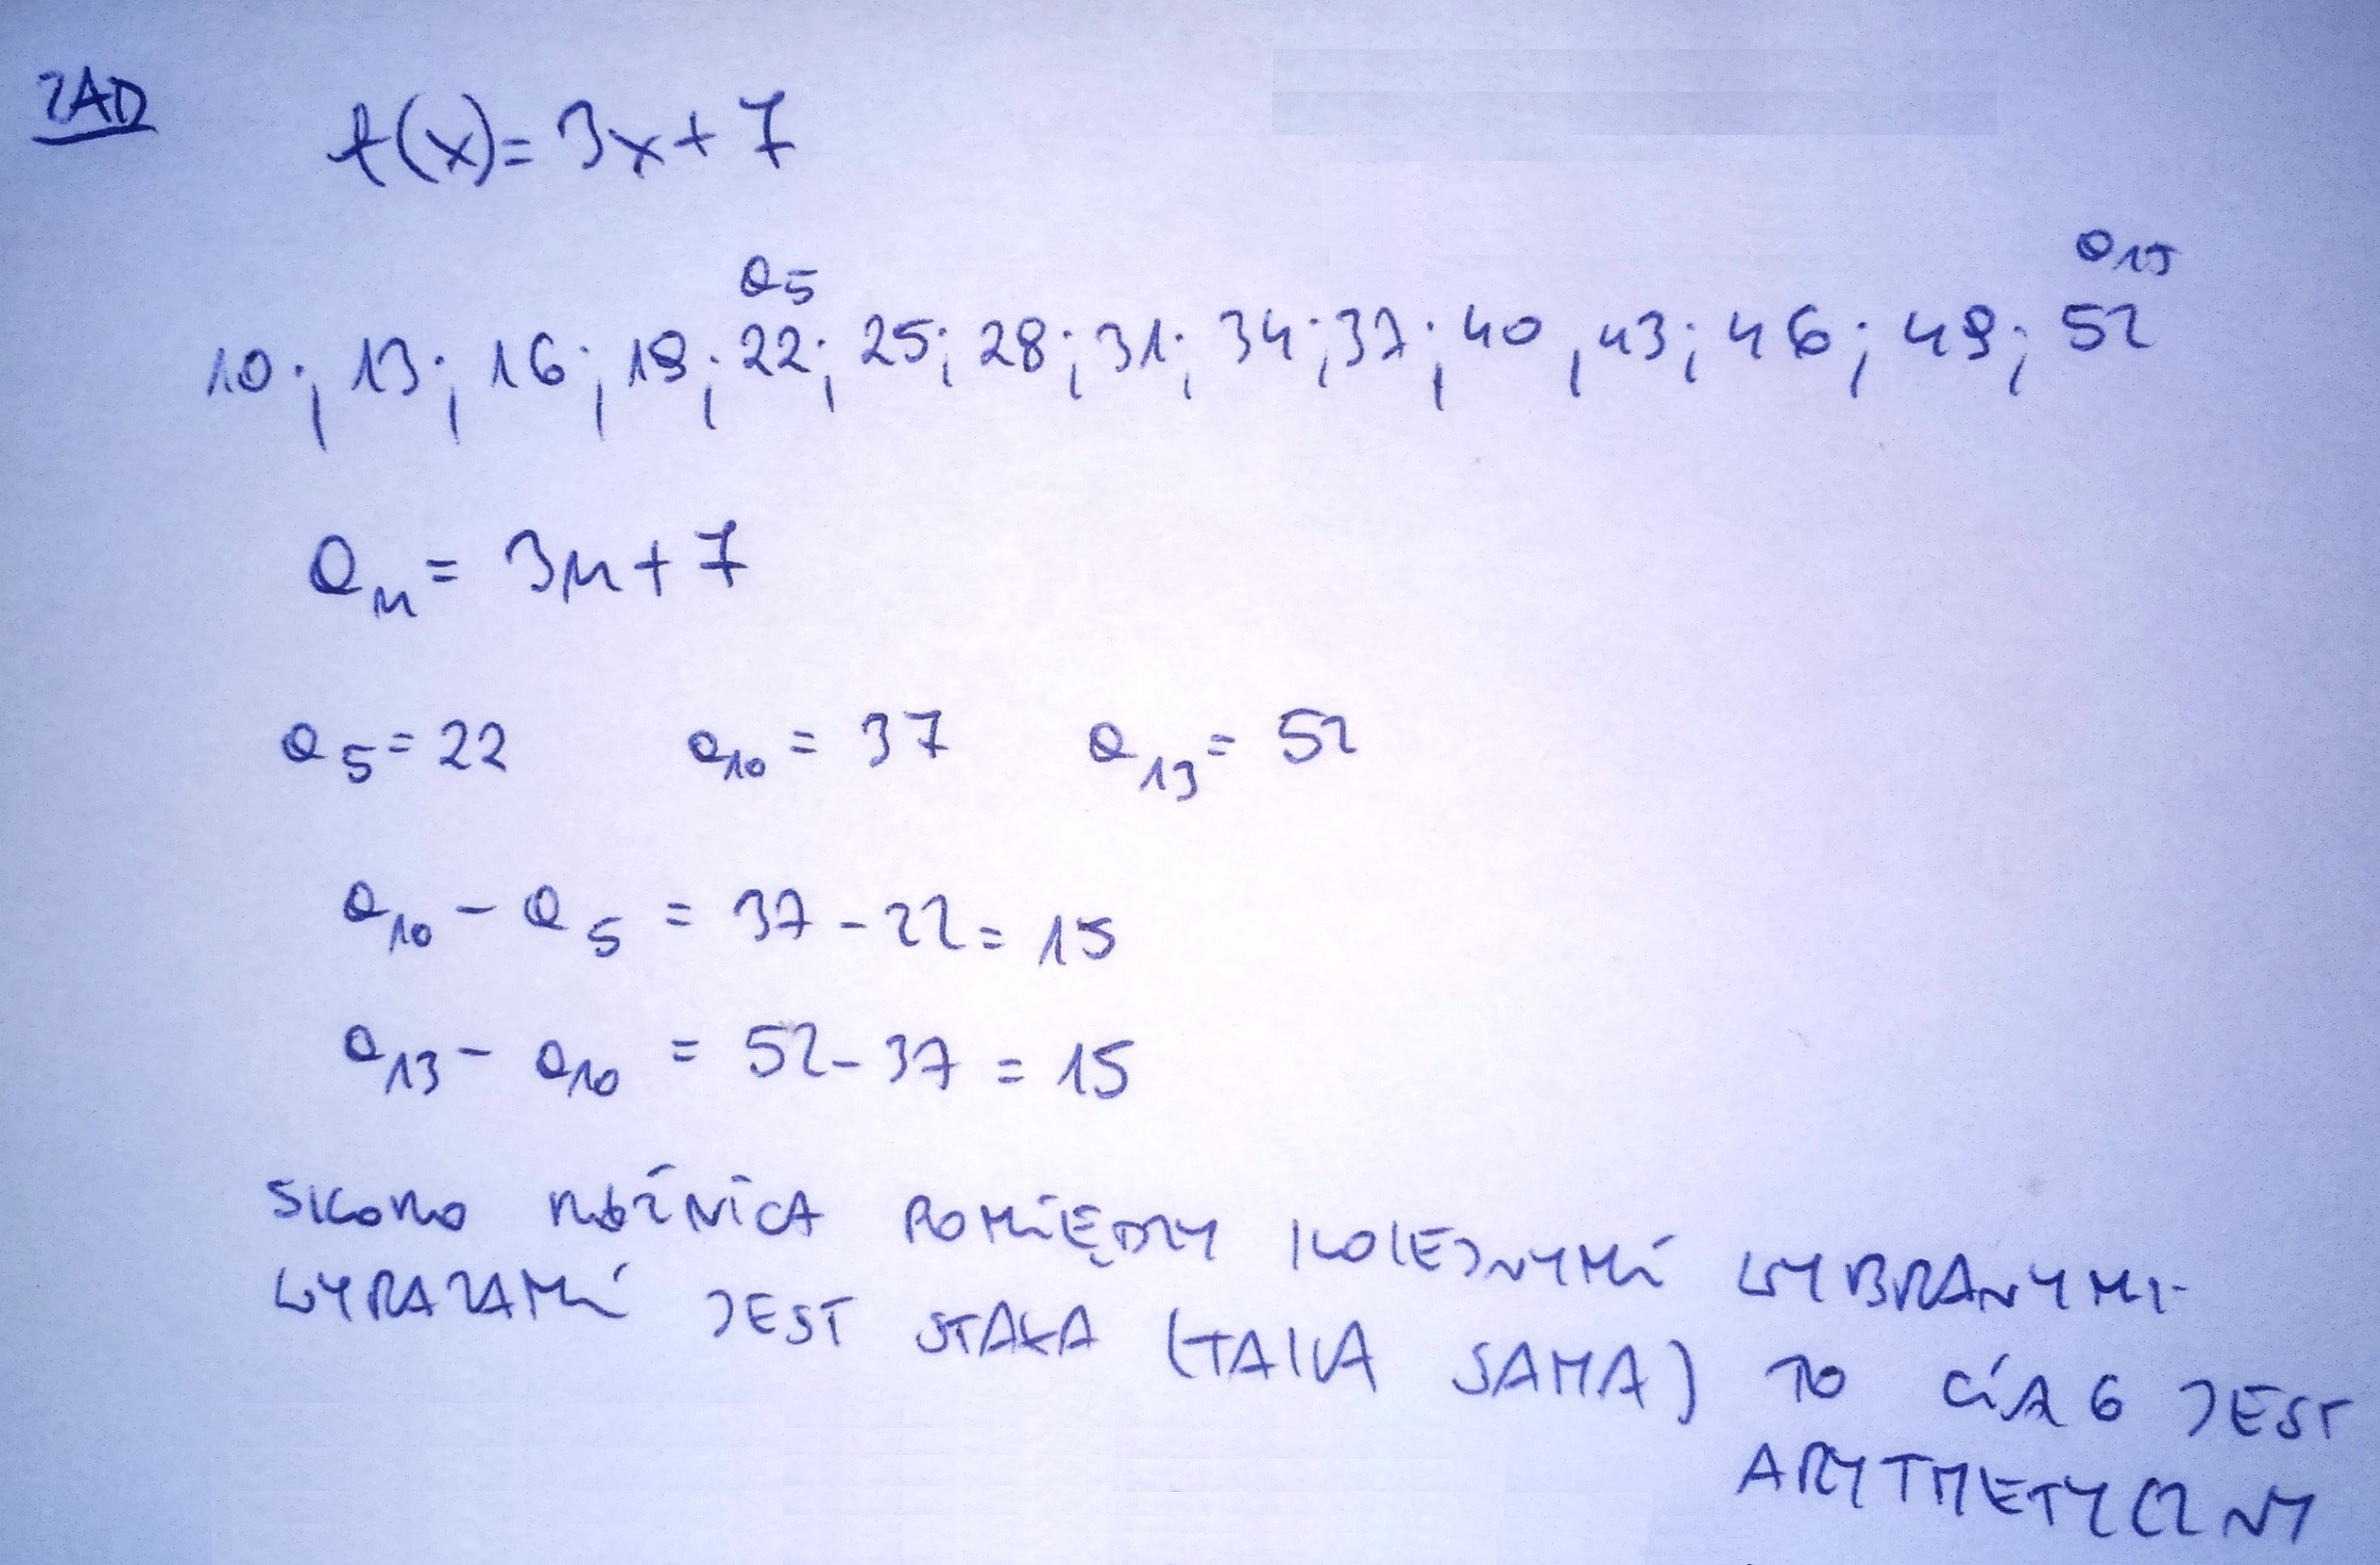 ZAD
f(x)=3x+7
a5 a15
10; 13; 16; 19; 22; 25; 28; 31; 34; 37; 40, 43; 46; 49; 52
an = 3n+7
a5=22 a10 = 37 a13 = 52
a10 - a5 = 37-22= 15
a13 - a10 = 52-37 = 15
SKORO RÓŻNICA POMIĘDZY KOLEJNYMI WYBRANYMI
WYRAZAMI JEST STAŁA (TAKA SAMA) TO CIĄG JEST
ARYTMETYCZNY